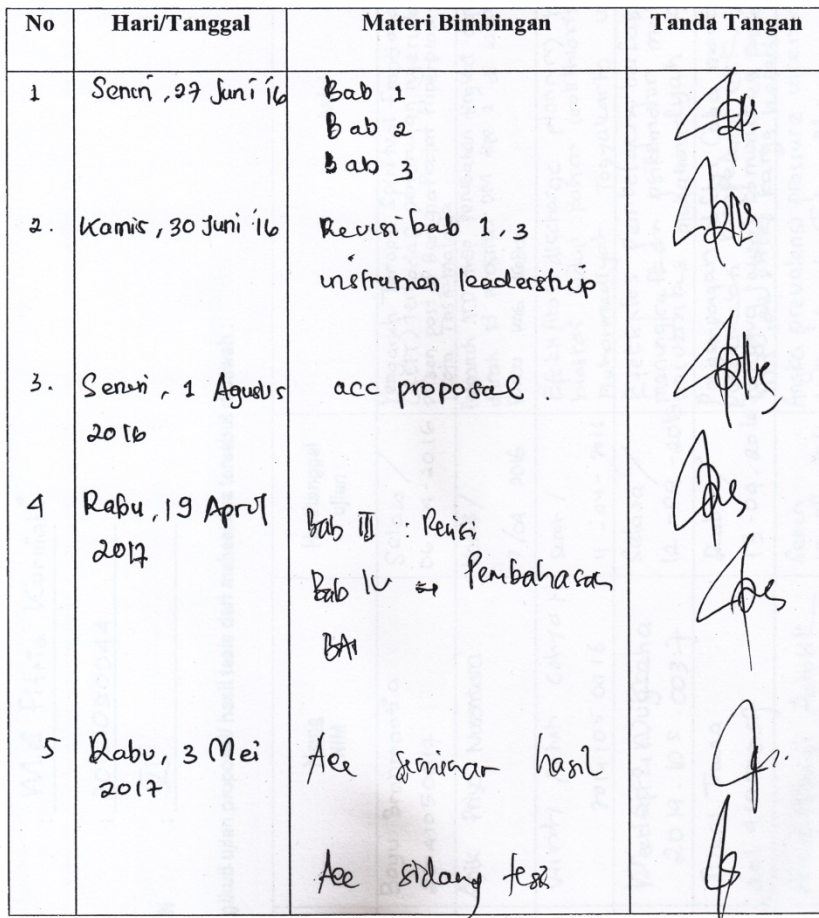 No Hari/Tanggal Materi Bimbingan Tanda Tangan
1 Senin, 27 Juni '16 Bab 1
Bab 2
Bab 3
2. Kamis, 30 Juni '16 Revisi bab 1, 3
instrumen leadership
3. Senin, 1 Agustus acc proposal.
2016
4 Rabu, 19 April
2017 Bab III : Revisi
Bab IV Pembahasan
5 Rabu, 3 Mei Acc seminar hasil
2017
Acc sidang tesis